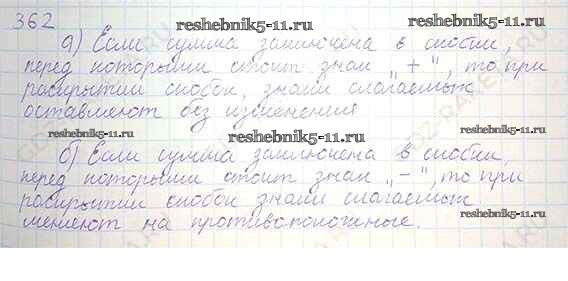 362
reshebnik5-11.ru
а) Если сумма заключена в скобки,
перед которыми стоит знак „+“, то при
раскрытии скобок, знаки слагаемых
оставляют без изменения
reshebnik5-11.ru
reshebnik5-11.ru
б) Если сумма заключена в скобки,
перед которыми стоит знак „-“, то при
раскрытии скобок знаки слагаемых
reshebnik5-11.ru
меняют на противоположные.